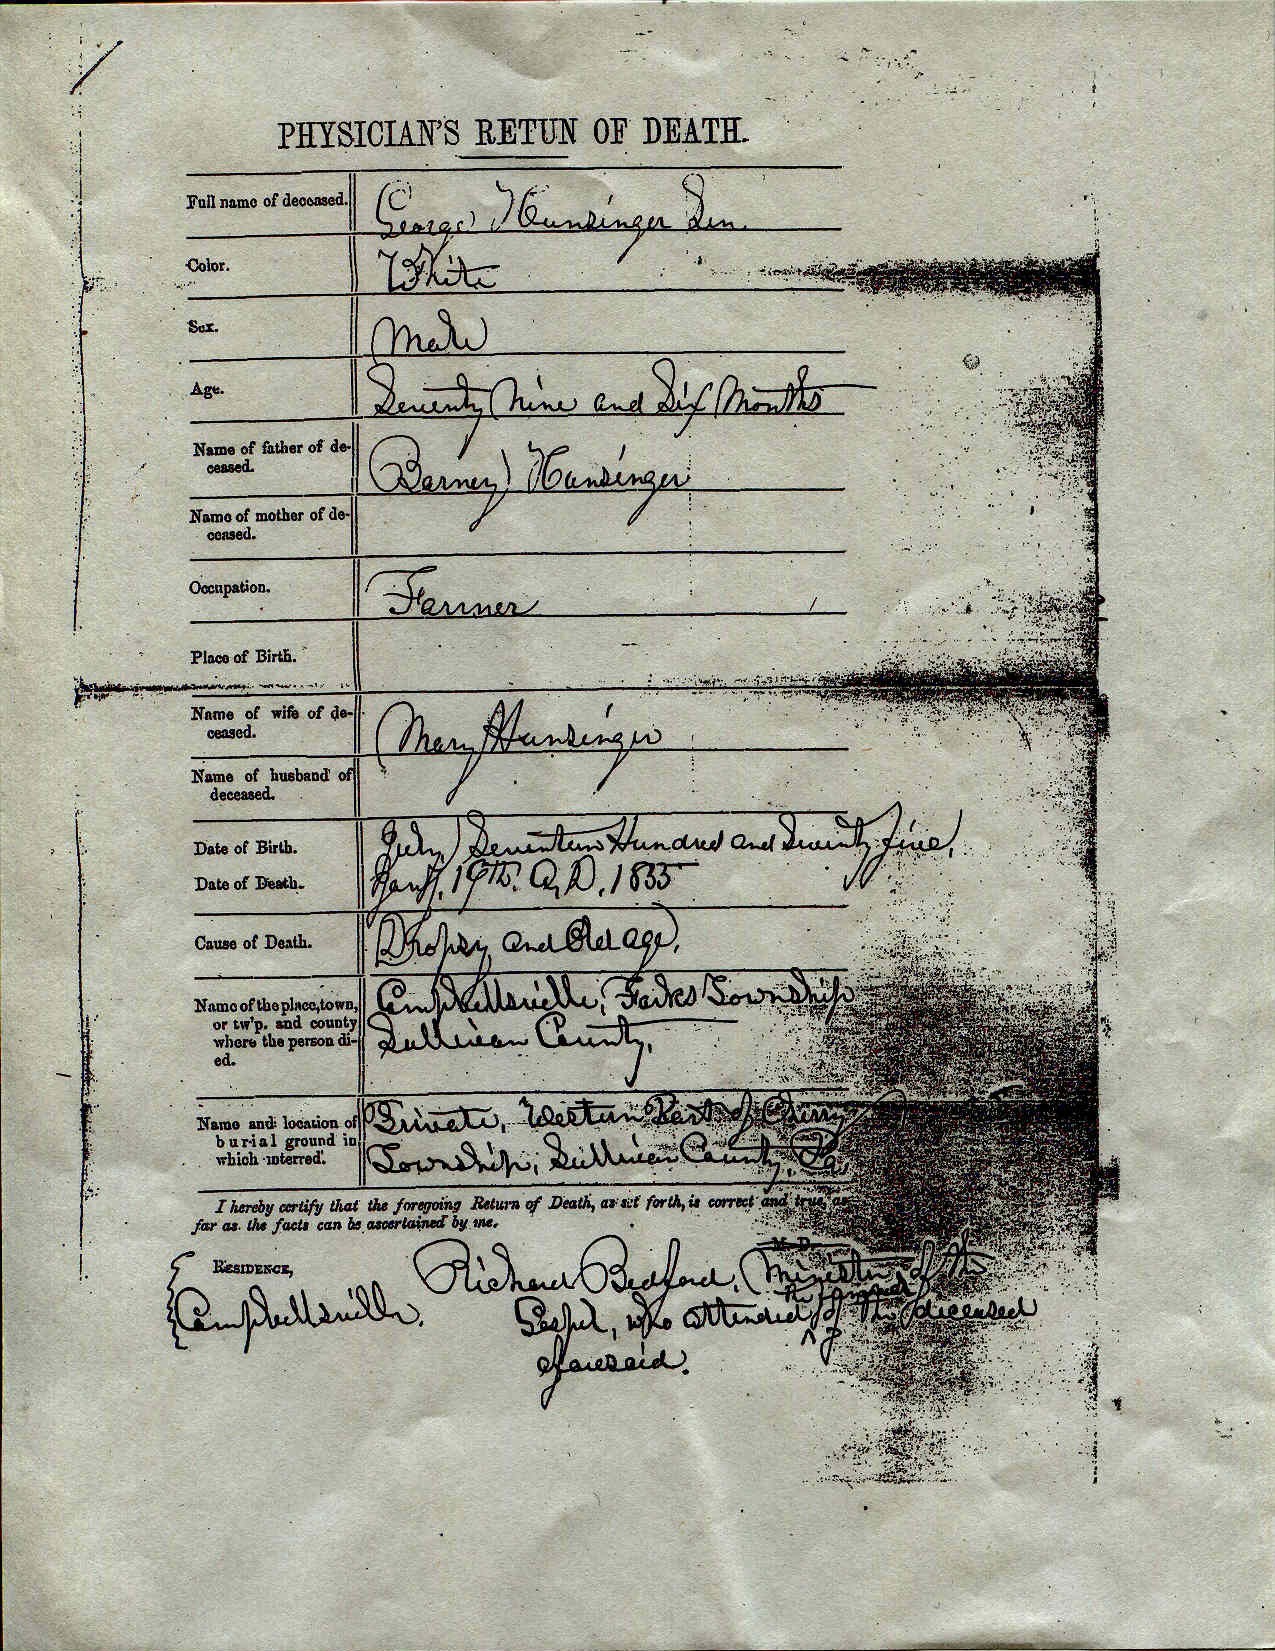 PHYSICIAN'S RETUN OF DEATH.
Full name of deceased. George Hunsinger Sen.
Color. White
Sex. Male
Age. Seventy Nine and Six Months
Name of father of de-
ceased. Barney Hunsinger
Name of mother of de-
ceased.
Occupation. Farmer
Place of Birth.
Name of wife of de-
ceased. Mary Hunsinger
Name of husband of
deceased.
Date of Birth. July, Seventeen Hundred and Seventy five,
Date of Death. 19th. A.D. 1855
Cause of Death. Dropsy and Old age,
Name of the place, town, Campbellsville, Forks Township
or tw'p. and county Sullivan County,
where the person di-
ed.
Name and location of Private, Western Part of Cherry
burial ground in Township, Sullivan County, Pa,
which interred.
I hereby certify that the foregoing Return of Death, as set forth, is correct and true, as
far as the facts can be ascertained by me.
M. D.
RESIDENCE, Richard Bedford, Minister of the
the funeral
Campbellsville. Gospel, who attended of the deceased
aforesaid.